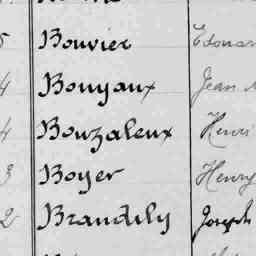 5 Bouvier Edouar
4 Bouyoux Jean
4 Bouzaleux Henri
3 Boyer Henry
2 Brandily Joseph